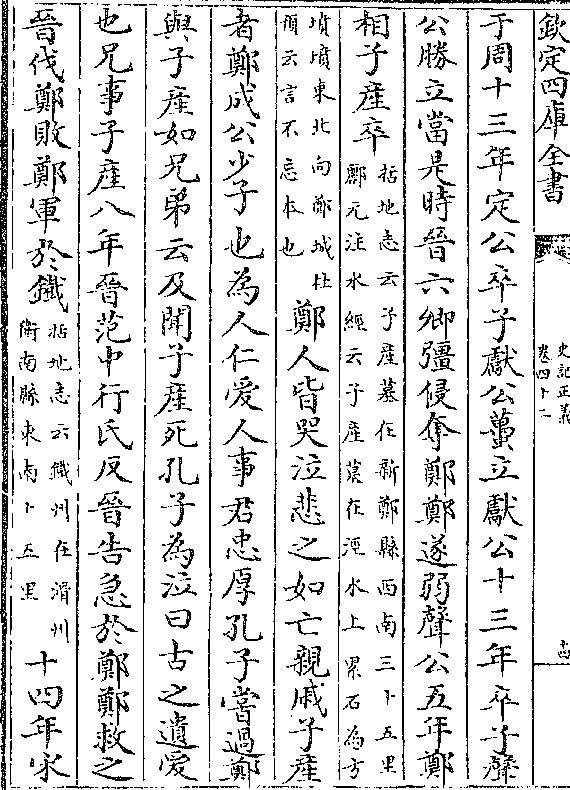 欽定四庫全書
史記正義
卷四十二
十四
于周十三年定公卒子獻公蠆立獻公十三年卒子聲
公勝立當是時晉六卿彊侵奪鄭鄭遂弱聲公五年鄭
相子產卒
括地志云子產墓在新鄭縣西南三十五里
酈元注水經云子產墓在湮水上累石為方
墳墳東北向鄭城杜
預云言不忘本也
鄭人皆哭泣悲之如亡親戚子產
者鄭成公少子也為人仁愛人事君忠厚孔子嘗過鄭
與子產如兄弟云及聞子產死孔子為泣曰古之遺愛
也兄事子產八年晉范中行氏反晉告急於鄭鄭救之
晉伐鄭敗鄭軍於鐵
括地志云鐵州在滑州
衛南縣東南十五里
十四年宋